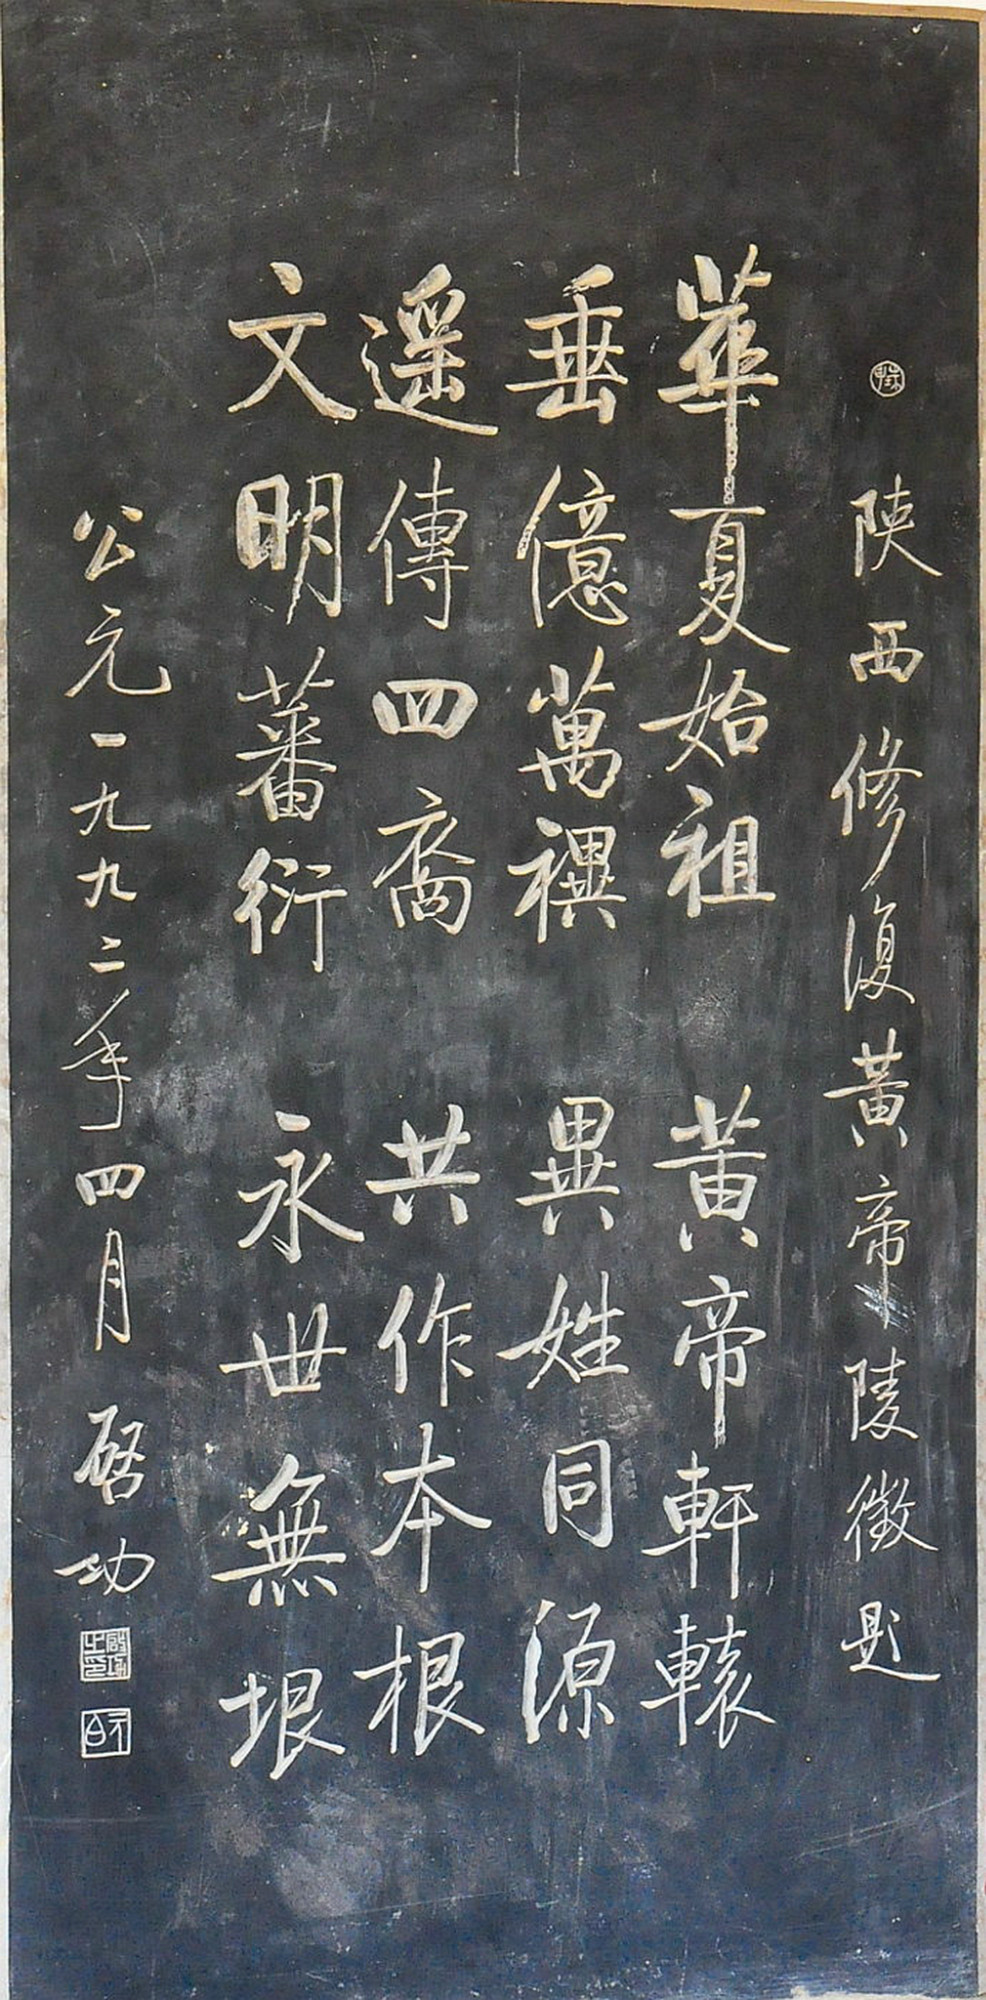 陝西修復黃帝陵徵題
華夏始祖 黃帝軒轅
垂億萬禩 異姓同源
遥傳四裔 共作本根
文明蕃衍 永世無垠
公元一九九二年四月 啓功
啟功之印
元白